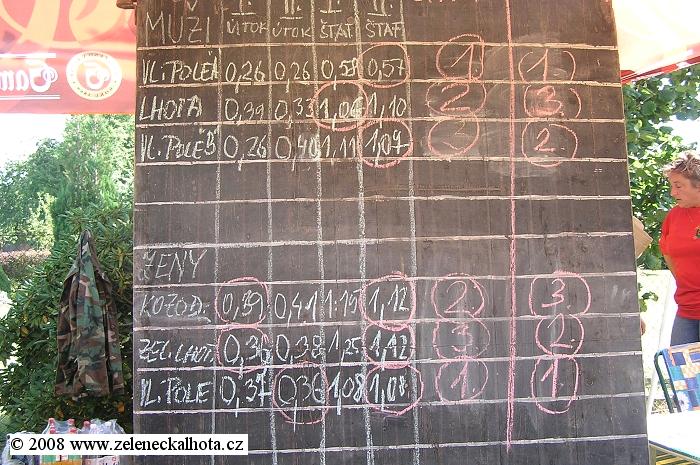 MUŽI I. ÚTOK II. ÚTOK I. ŠTAF II. ŠTAF
VL.POLE A 0,26 0,26 0,58 0,57 1. 1.
LHOTA 0,39 0,33 1,06 1,10 2. 3.
VL.POLE B 0,26 0,40 1,11 1,09 3. 2.
ŽENY
KOZOD. 0,39 0,41 1.15 1,12 2. 3.
ZEL.LHOT. 0,36 0,38 1,25 1,12 3. 2.
VL.POLE 0,37 0,36 1,08 1,08 1. 1.
© 2008 - www.zeleneckalhota.cz